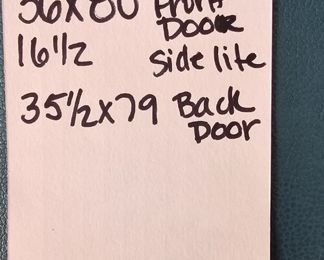 36x80 Front
Door
16 1/2 Side lite
35 1/2 x 79 Back
Door